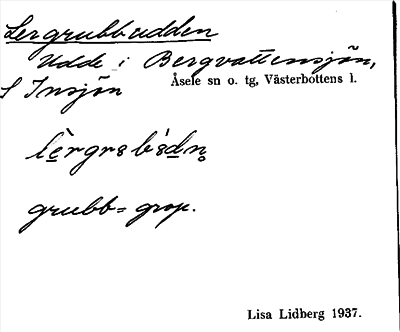 Lergrubbudden
Udde i Bergvattensjön,
Åsele sn o. tg, Västerbottens l.
S Insjön
grubb = grop.
Lisa Lidberg 1937.